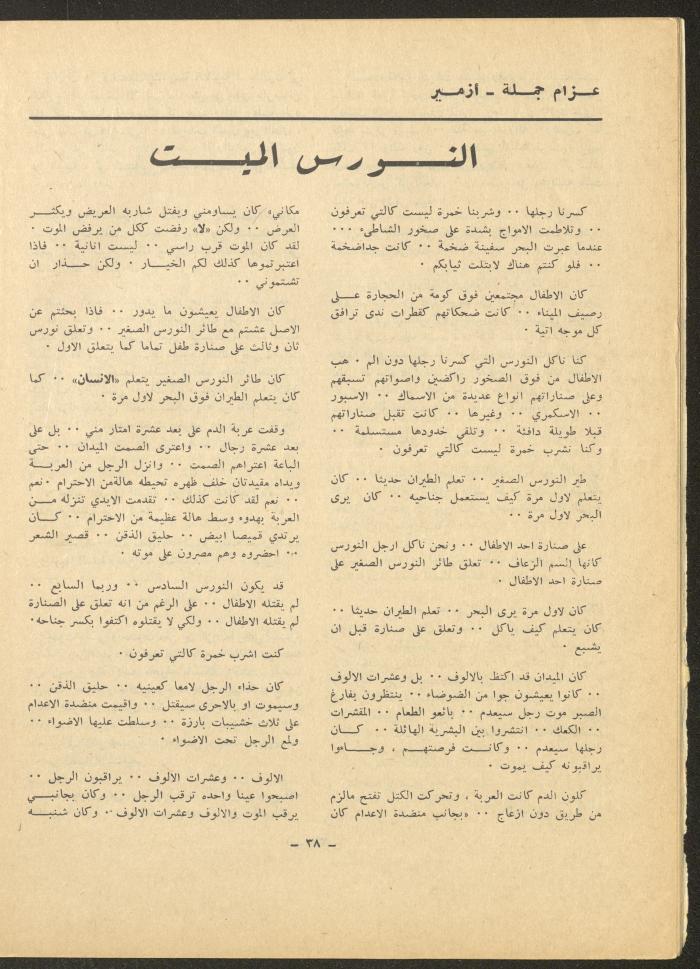 عـزام جمـلة - أزمـير
النـــورس الميـــت
كسرنا رجلها ٠٠ وشربنا خمرة ليست كالتي تعرفون
٠٠ وتلاطمت الامواج بشدة على صخور الشاطىء ٠٠٠
عندما عبرت البحر سفينة ضخمة ٠٠ كانت جداضخمة
٠٠ فلو كنتم هناك لابتلت ثيابكم ٠
كان الاطفال مجتمعين فوق كومة من الحجارة عـلـى
رصيف الميناء ٠٠ كانت ضحكاتهم كقطرات ندى ترافق
كل موجه اتية ٠
كنا نأكل النورس التي كسرنا رجلها دون الم ٠ هب
الاطفال من فوق الصخور راكضين واصواتهم تسبقهم
وعلى صناراتهم انواع عديدة من الاسماك ٠٠ الاسبور
٠٠ الاسكمري ٠٠ وغيرها ٠٠ كانت تقبل صناراتهم
قبلا طويلة دافئة ٠٠ وتلقي خدودها مستسلمة ٠٠
وكنا نشرب خمرة ليست كالتي تعرفون ٠
طير النورس الصغير ٠٠ تعلم الطيران حديثا ٠٠ كان
يتعلم لاول مرة كيف يستعمل جناحيه ٠٠ كان يرى
البحر لاول مرة ٠٠
على صنارة احد الاطفال ٠٠ ونحن ناكل ارجل النورس
كانها السم الزعاف ٠٠ تعلق طائر النورس الصغير على
صنارة احد الاطفال ٠
كان لاول مرة يرى البحر ٠٠ تعلم الطيران حديثا ٠٠
كان يتعلم كيف ياكل ٠٠ وتعلق على صنارة قبل ان
يشبع ٠
كان الميدان قد اكتظ بالالوف ٠٠ بل وعشرات الالوف
٠٠ كانوا يعيشون جوا من الضوضاء ٠٠ ينتظرون بفارغ
الصبر موت رجل سيعدم ٠٠ بائعو الطعام ٠٠ المقشرات
٠٠ الكعك ٠٠ انتشروا بين البشرية الهائلة ٠٠ كـــان
رجلها سيعدم ٠٠ وكانــت فرصتهــم ، وجــاءوا
يراقبونه كيف يموت ٠
كلون الدم كانت العربة ، وتحركت الكتل تفتح مالزم
من طريق دون ازعاج ٠٠ «بجانب منضدة الاعدام كان
مكاني» كان يساومني ويفتل شاربه العريض ويكثـــر
العرض ٠٠ ولكن «لا» رفضت ككل من يرفض الموت ٠
لقد كان الموت قرب راسي ٠٠ ليست انانية ٠٠ فاذا
اعتبرتموها كذلك لكم الخيـــار ٠ ولكن حـــذار ان
تشتموني ٠٠
كان الاطفال يعيشون ما يدور ٠٠ فاذا بحثتم عن
الاصل عشتم مع طائر النورس الصغير ٠٠ وتعلق نورس
ثان وثالث على صنارة طفل تماما كما يتعلق الاول ٠
كان طائر النورس الصغير يتعلم «الانسان» ٠٠ كما
كان يتعلم الطيران فوق البحر لاول مرة ٠
وقفت عربة الدم على بعد عشرة امتار مني ٠٠ بل على
بعد عشرة رجال ٠٠ واعترى الصمت الميدان ٠٠ حتى
الباعة اعتراهم الصمت ٠٠ وانزل الرجل من العربـــة
ويداه مقيدتان خلف ظهره تحيطه هالةمن الاحترام ٠نعم
٠٠ نعم لقد كانت كذلك ٠٠ تقدمت الايدي تنزله مـــن
العربة بهدوء وسط هالة عظيمة من الاحترام ٠٠ كـــان
يرتدي قميصا ابيض ٠٠ حليق الذقن ٠٠ قصير الشعر
٠٠ احضروه وهم مصرون على موته ٠
قد يكون النورس السادس ٠٠ وربما السابع ٠٠
لم يقتله الاطفال ٠٠ على الرغم من انه تعلق على الصنارة
لم يقتله الاطفال ٠٠ ولكي لا يقتلوه اكتفوا بكسر جناحه٠
كنت اشرب خمرة كالتي تعرفون ٠
كان حذاء الرجل لامعا كعينيه ٠٠ حليق الذقن ٠٠
وسيموت او بالاحرى سيقتل ٠٠ واقيمت منضدة الاعدام
على ثلاث خشيبات بارزة ٠٠ وسلطت عليها الاضواء ٠٠
ولمع الرجل تحت الاضواء ٠
الالوف ٠٠ وعشرات الالوف ٠٠ يراقبون الرجل ٠٠
اصبحوا عينا واحده ترقب الرجل ٠٠ وكان بجانبـــي
يرقب الموت والالوف وعشرات الالوف ٠٠ وكان شنبـــه
- ٣٨ -